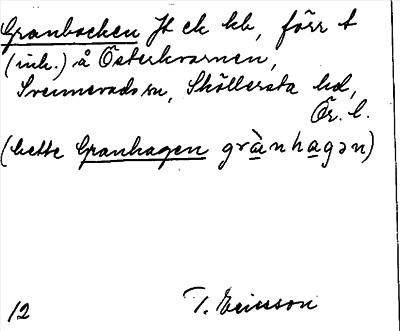 Granbacken Jt ek kk, förr t
(ink.) å Österkvarnen,
Svennevads sn, Sköllersta hd,
Ör. l.
(hette Granhagen grànhagən)
12 T. Ericsson